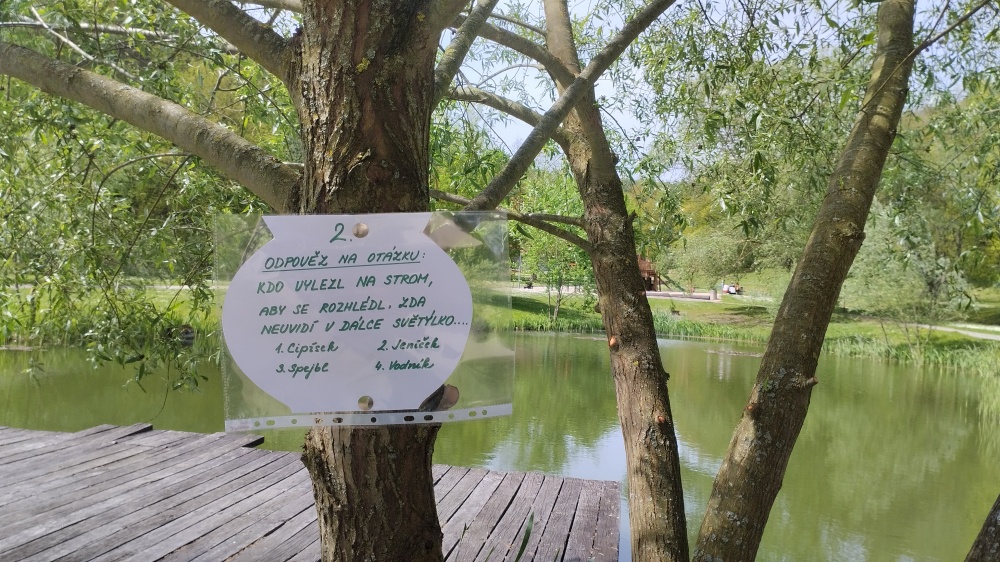 2.
ODPOVĚZ NA OTÁZKU:
KDO VYLEZL NA STROM,
ABY SE ROZHLÉDL. ZDA
NEUVIDÍ V DÁLCE SVĚTÝLKO....
1. Cipísek 2. Jeníček
3. Spejbl 4. Vodník